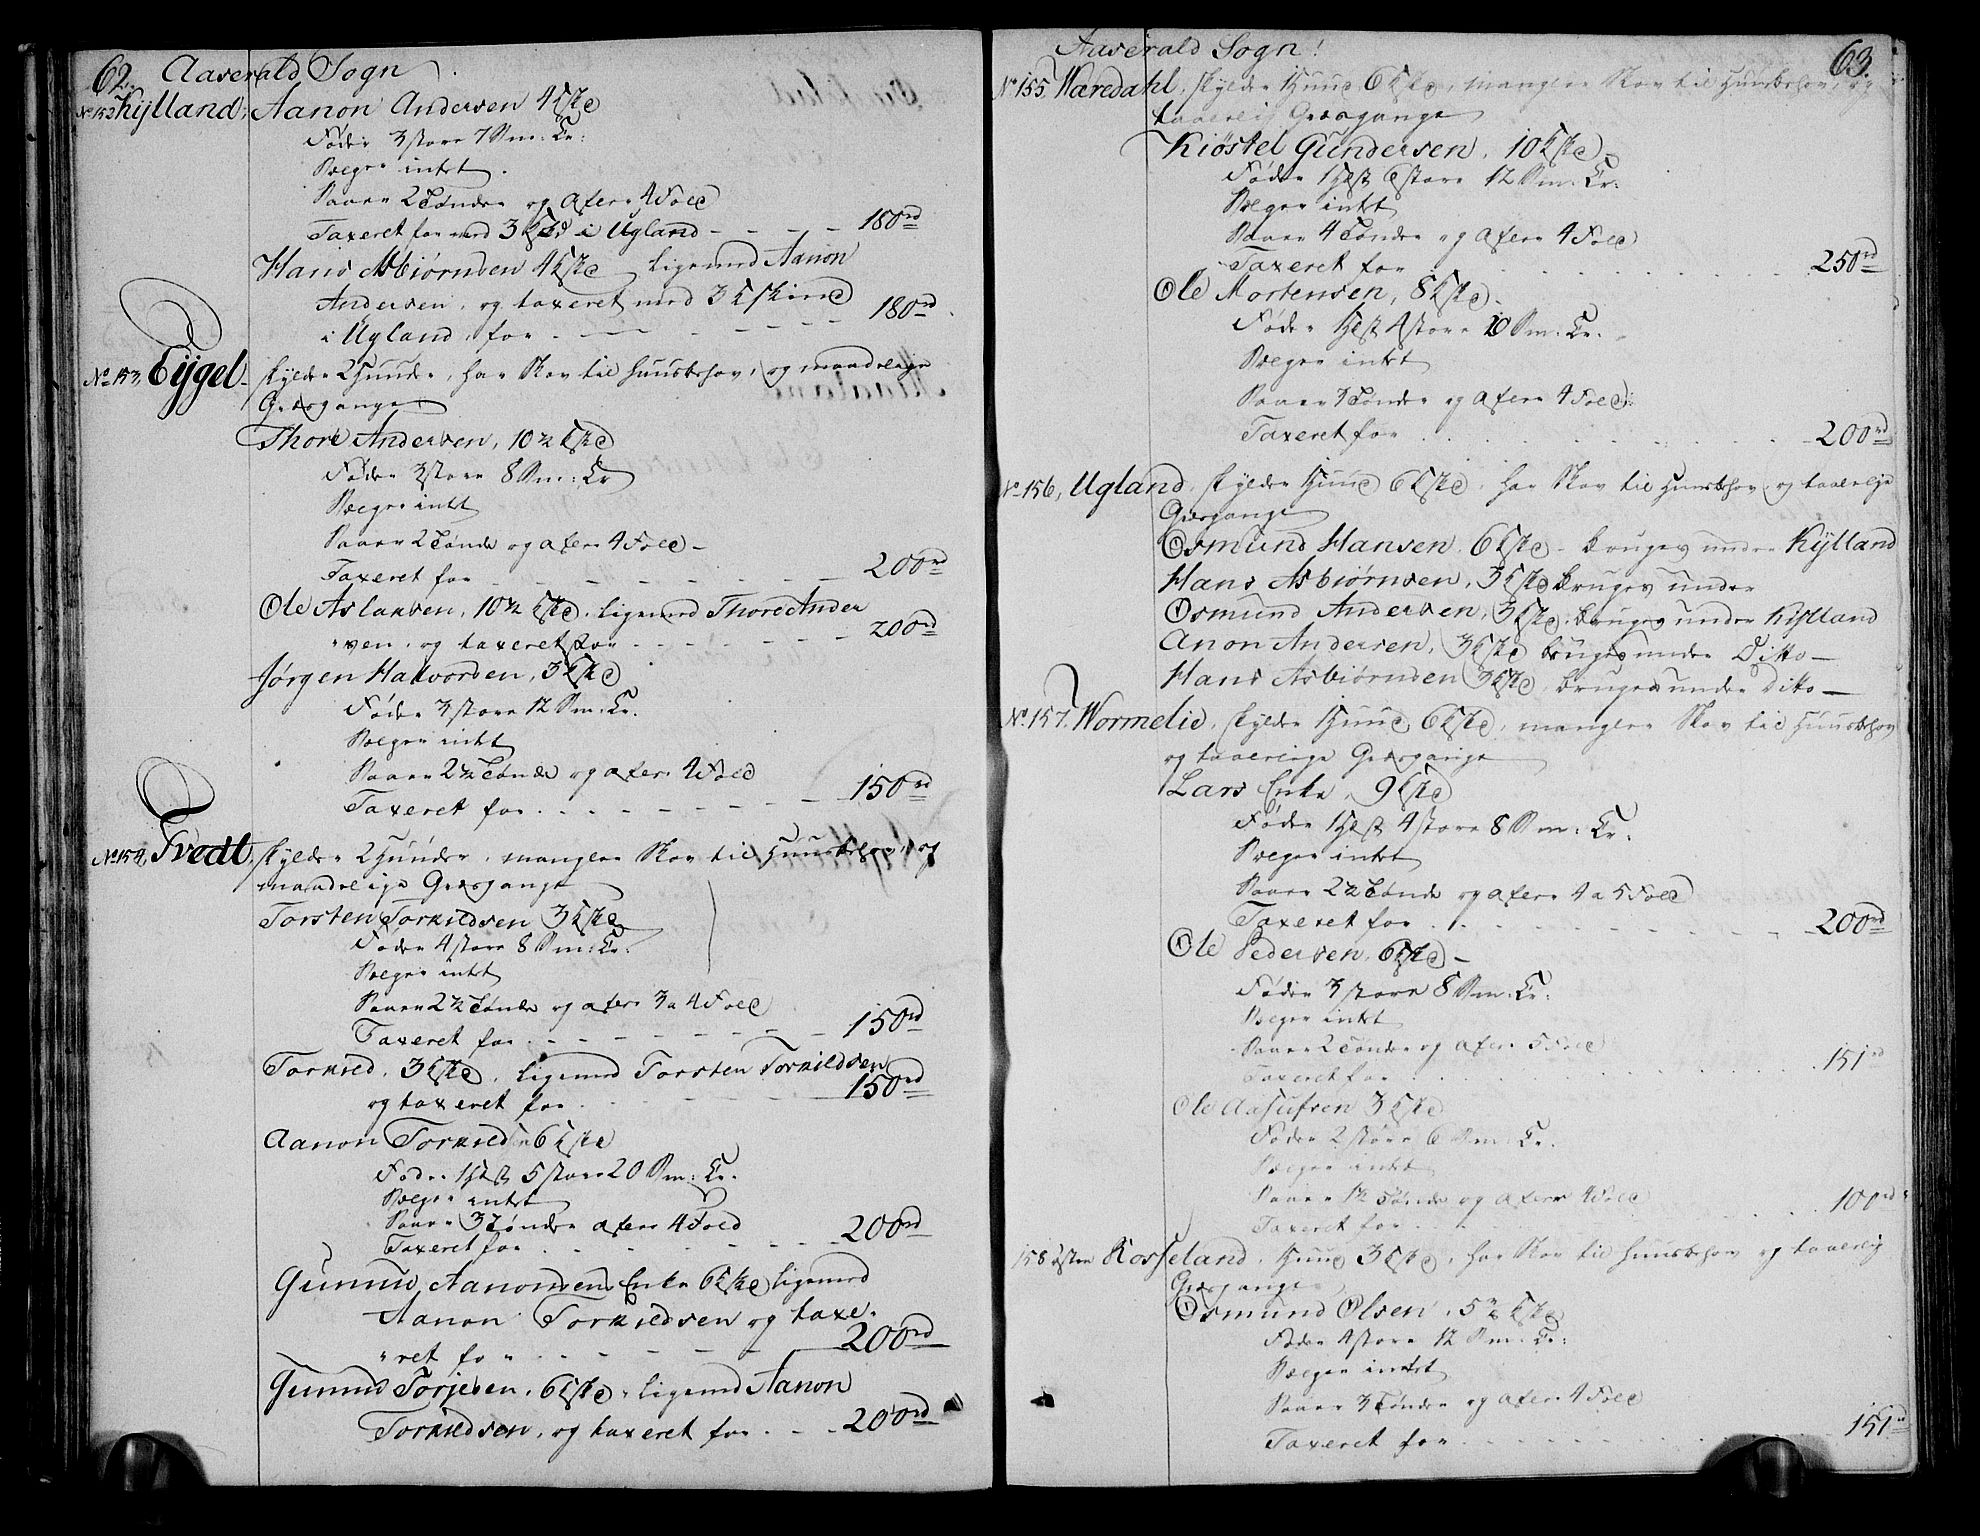 62. Aaserald Sogn
No 152 Kylland, Aanon Andersen 4 Skd
Føder 3 store 7 Sm: Kr:
Bieger intet.
Saaer 2 Tønder og afler 4 Fold
Taxeret for med 3 Skd i Ugland - - - 180rd
Hans Asbiørnsen 4 Skd ligemed Aanon
Andersen, og taxeret med 3 Skind
i Ugland, for - - - 180rd
No 153, Eijgel skylder 2 Huuder, har Skov til Huusbehov, og maadelige
Græsgange
Thore Andersen, 10½ Skd
Føder 3 store 8 Sm: Kr
Bieger intet
Saaer 2 Tønder og afler 4 Fold
Taxeret for - - - 200rd
Ole Aslaksen, 10½ Skd, ligemed Thore Ander
"sen, og taxeret for - - - 200rd
Jørgen Halvorsen, 3 Skd
Føder 3 store 12 Sm: Kr.
Bieger intet
Saaer 2½ Tønder og afler 4 Fold
Taxeret for - - - 150rd
No 154, Tvedt, skylder 2 Huuder, mangler Skov til Huusbehov, og
maadelige Græsgange
Torsten Torkildsen 3 Skd
Føder 4 store 8 Sm: Kr.
Bieger intet
Saaer 2½ Tønder og afler 3 a 4 Fold
Taxeret for - - - 150rd
Torkild, 3 Skd, ligemed Torsten Torkildsen
og taxeret for - - - 150rd
Aanon Torkilds: 6 Skd
Føder 1 Hest 5 store 20 Sm: Kr.
Bieger intet
Saaer 3 Tønder afler 4 Fold
Taxeret for - - - 200rd
Gunuld Aanonsens Enke 6 Skd ligemed
Aanon Torkildsen og taxe-
"ret for - - - 200rd
Gunuld Torjesen, 6 Skd, ligemed Aanon
Torkildsen, og taxeret for - - - 200rd
Aaserald Sogn! 63.
No 155. Waredahl, skylder 1 Huud 6 Skd, mangler Skov til Huusbehov, og
taalelig Græsgange
Kiøstel Gundersen, 10 Skd
Føder 1 Hest 6 store 12 Sm: Kr:
Bieger intet
Saaer 4 Tønder og afler 4 Fold
Taxeret for - - - 250rd
Ole Mortensen, 8 Skd
Føder 1 Hest 4 store 10 Sm: Kr.
Bieger intet
Saaer 3 Tønder og afler 4 Fold
Taxeret for - - - 200rd
No 156, Ugland, skylder 1 Huud 6 Skd, har Skov til Huusbehov og taalelige
Græsgange
Osmund Hansen, 6 Skd - bruges under Kylland
Hans Asbiørnsen, 3 Skd bruges under
Osmund Andersen, 3 Skd, bruges under Kylland
Anon Andersen, 3 Skd bruges under Ditto -
Hans Asbiørnsen 3 Skd, bruges under Ditto -
No 157. Wormelie, skylder 1 Huud 6 Skd, mangler Skov til Huusbehov
og taalelige Græsgange
Lars Enke, 9 Skd
Føder 1 Hest 4 store 8 Sm: Kr.
Bieger intet
Saaer 2½ Tønder og afler 4 a 5 Fold
Taxeret for - - - 200rd
Ole Pedersen, 6 Skd -
Føder 3 store 8 Sm: Kr:
Bieger intet
Saaer 2 Tønder og afler 5 Fold
Taxeret for - - - 151rd
Ole Aasufsen 3 Skd
Føder 2 store 6 Sm: Kr.
Bieger intet
Saaer 1½ Tønder og afler 4 Fold
Taxeret for - - - 100rd
158 Østen Kosseland, 1 Huud 3 Skd, har Skov til Huusbehov og taalelig
Græsgange
Osmund Olsen, 5½ Skd
Føder 4 store 12 Sm: Kr:
Bieger intet
Saaer 3 Tønder og afler 4 Fold
Taxeret for - - - 151rd